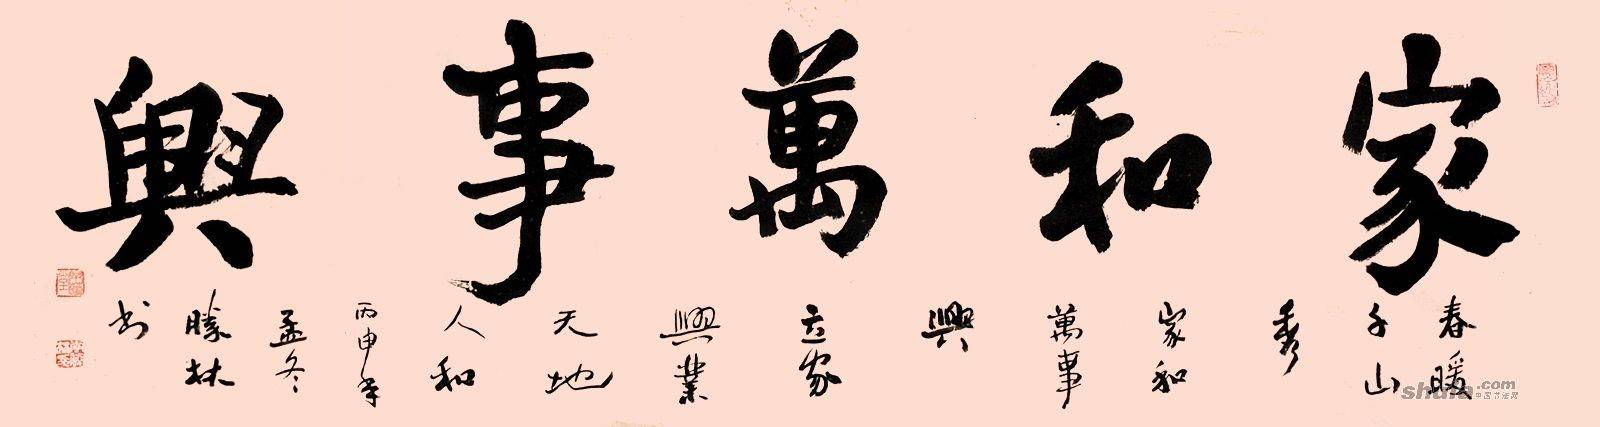 家和萬事興
春暖
千山
秀
家和
萬事
興
立家
興業
天地
人和
丙申年
孟冬
勝林
书
shufa.com
中国书法网